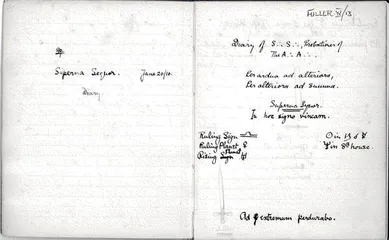 Superna Sequor. June 20/10.
Diary
FULLER IV/13
Diary of S∴ S∴, Probationer of
The A∴ A∴
Per ardua ad altiora,
Per altiora ad summa.
Superna Sequor.
In hoc signo vincam.
Ruling Sign ♎
Ruling Planet
Rising Sign
in 8th house.
Ad extremum perdurabo.